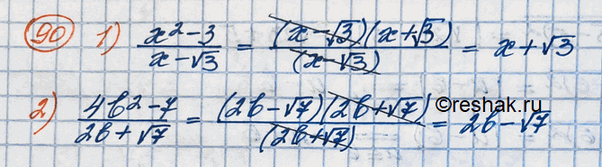 90 1) (x² - 3)/(x - √3) = ((x - √3)(x + √3))/((x - √3)) = x + √3
2) (4b² - 7)/(2b + √7) = ((2b - √7)(2b + √7))/((2b + √7)) = 2b - √7
©reshak.ru